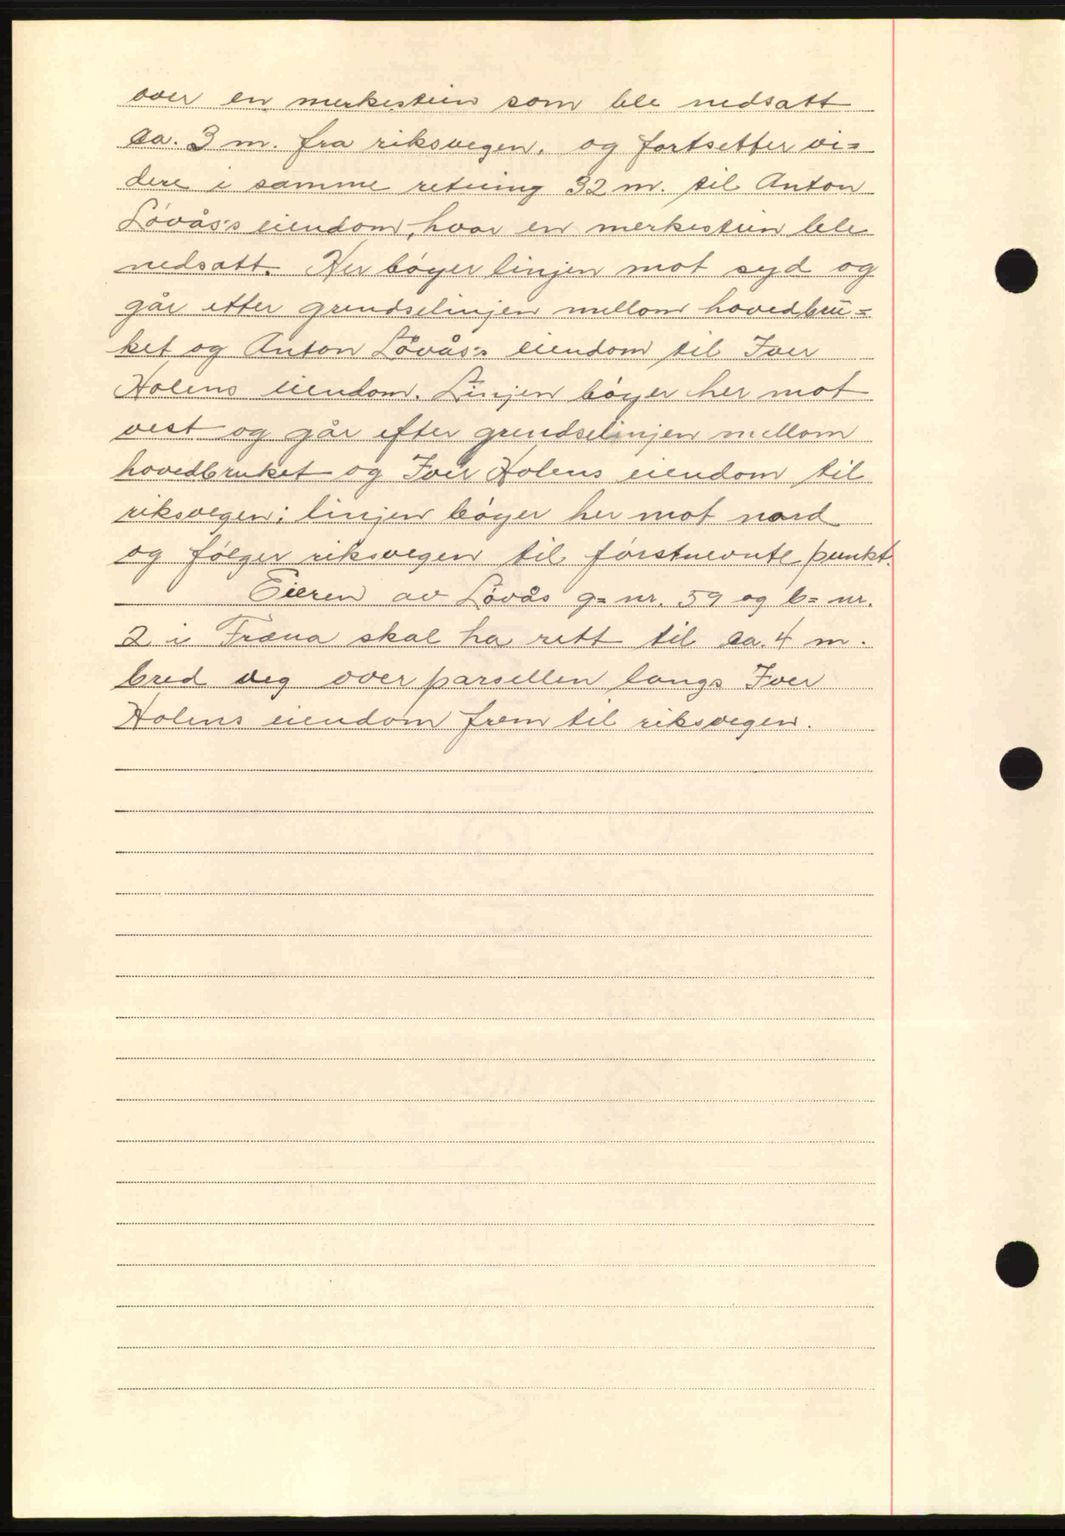 over en merkestein som ble nedsatt
ca. 3 m. fra riksvegen, og fortsetter vi=
dere i samme retning 32 m. til Anton
Løvås's eiendom, hvor en merkestein ble
nedsatt. Her bøyer linjen mot syd og
går etter grendselinjen mellom hovedbru=
ket og Anton Løvås's eiendom til Iver
Holens eiendom. Linjen bøyer her mot
vest og går efter grendselinjen mellom
hovedbruket og Iver Holens eiendom til
riksvegen; linjen bøyer her mot nord
og følger riksvegen til førstnevnte punkt.
Eieren av Løvås g=nr. 59 og b=nr.
2 i Fræna skal ha rett til ca. 4 m.
bred veg over parsellen langs Iver
Holens eiendom frem til riksvegen.